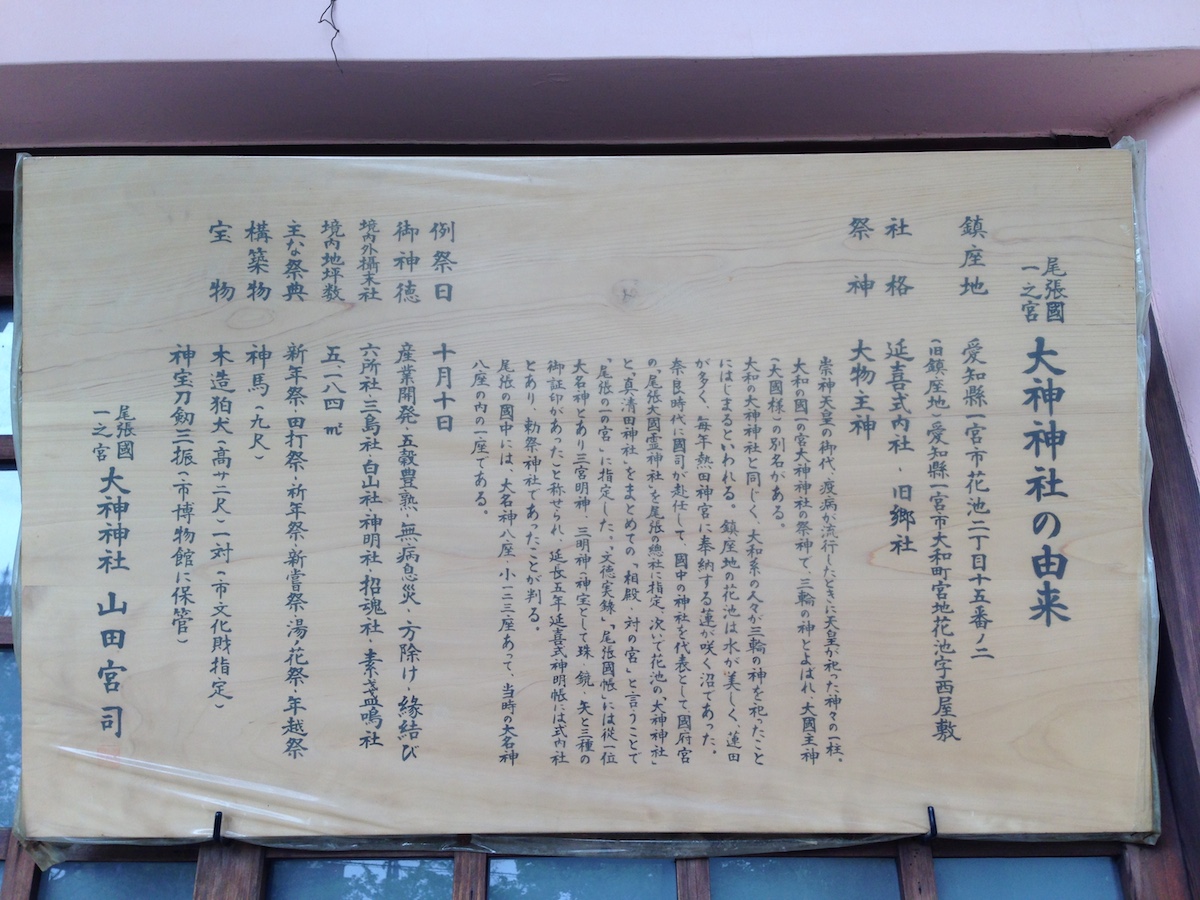 尾張國一之宮 大神神社の由来
鎮座地 愛知縣一宮市花池二丁目十五番ノ二
(旧鎮座地・愛知縣一宮市大和町宮地花池字西屋敷
社格 延喜式内社・旧郷社
祭神 大物主神
崇神天皇の御代、疫病が流行したときに天皇が祀った神々の一柱。
大和の國一の宮大神神社の祭神で、三輪の神とよばれ、大國主神
(大國様)の別名がある。
大和の大神神社と同じく、大和系の人々が三輪の神を祀ったこと
にはじまるといわれる。鎮座地の花池は水が美しく、蓮田
が多く、毎年熱田神宮に奉納する蓮が咲く沼であった。
奈良時代に國司が赴任して、國中の神社を代表として、國府宮
の「尾張大國霊神社」を尾張の總社に指定、次いで花池の「大神神社」
と「真清田神社」をまとめての「相殿・対の宮」と言うことで
「尾張一の宮」に指定した。「文徳実録」「尾張國帳」には従一位
大名神とあり三宮明神・三明神・神宝として珠・鏡・矢と三種の
御証印があったこと称せられ、延長五年延喜式神明帳には式内社
とあり、勅祭神社であったことが判る。
尾張の國中には、大名神八座・小一二三座あって、当時の大名神
八座の内の一座である。
例祭日 十月十日
御神徳 産業開発・五穀豊熟・無病息災・方除け・縁結び
境内外攝末社 六所社・三島社・白山社・神明社・招魂社・素盞鳴社
境内地坪数 五、一八四㎡
主な祭典 新年祭・田打祭・祈年祭・新嘗祭・湯花祭・年越祭
構築物 神馬(九尺)
木造狛犬(高サ二尺)一対(市文化財指定)
宝物 神宝刀劔三振(市博物館に保管)
尾張國一之宮 大神神社 山田宮司